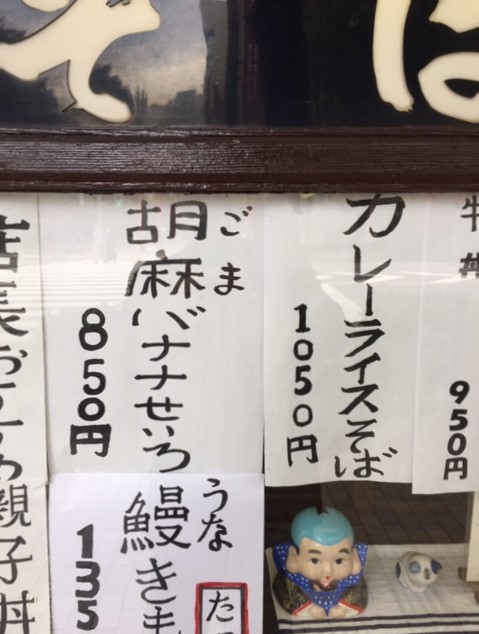 そば
牛丼
950円
カレーライスそば
1050円
ごま
胡麻バナナせいろ
850円
うな
鰻きも
135
た
店長おすすめ親子丼